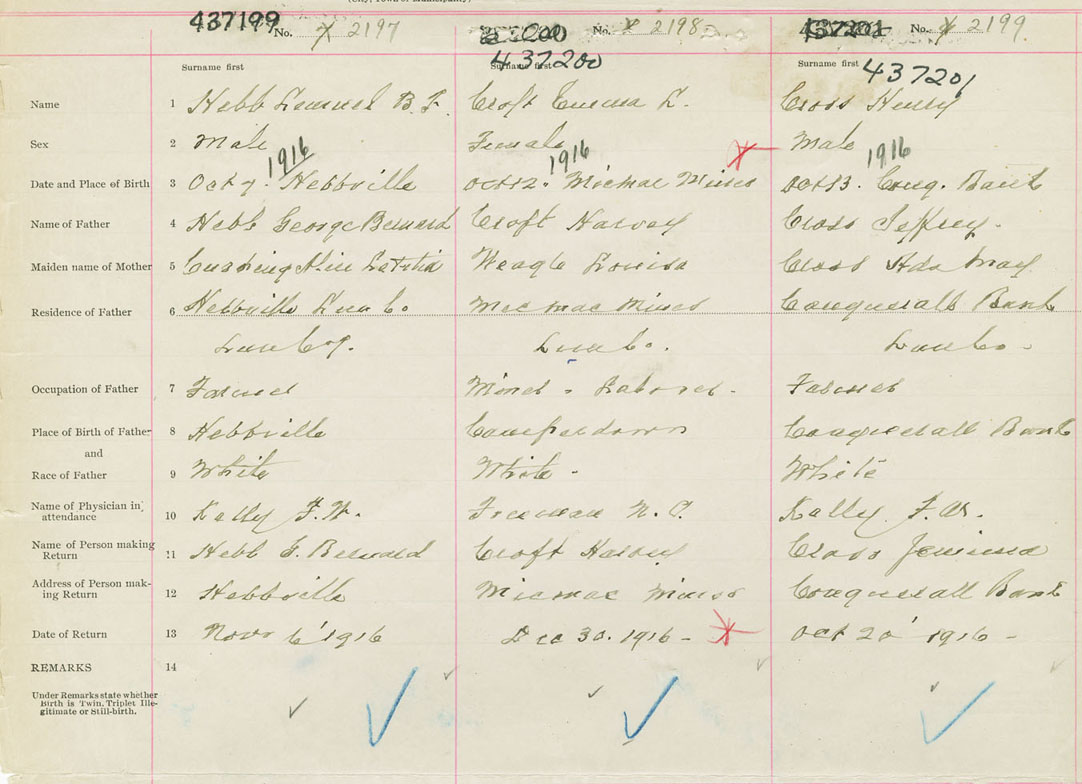 (City, Town or Municipality)
437199 No. 2197
No. 2198
437201 No. 2199
Surname first
Surname first 437200
Surname first 437201
Name 1 Hebb Lemuel B. F. Croft Emma L. Cross Henry
Sex 2 Male Female Male
1916 1916 1916
Date and Place of Birth 3 Oct 7. Hebbville Oct 12. Micmac Mines Oct 13. Conq. Bank
Name of Father 4 Hebb George Bernard Croft Harvey Cross Jeffrey.
Maiden name of Mother 5 Cushing Letitia Weagle Louisa Cross Ada May
Residence of Father 6 Hebbville Lun Co Micmac Mines Conquerall Bank
Lun Cy. Lun Co. Lun Co.
Occupation of Father 7 Farmer Miner - Laborer - Farmer
Place of Birth of Father 8 Hebbville Camperdown Conquerall Bank
and
Race of Father 9 White White - White
Name of Physician in attendance 10 Kelly F. W. Freeman N. P. Kelly F. W.
Name of Person making Return 11 Hebb G. Bernard Croft Harvey Cross Jemima
Address of Person making Return 12 Hebbville Micmac Mines Conquerall Bank
Date of Return 13 Nov 6 1916 Dec 30. 1916 - Oct 20 1916 -
REMARKS 14
Under Remarks state whether
Birth is Twin, Triplet Ille-
gitimate or Still-birth.